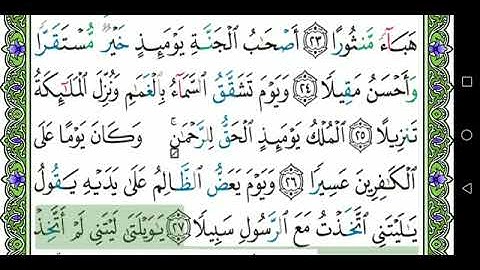 هَبَآءً مَّنثُورًا ٢٣ أَصْحَٰبُ ٱلْجَنَّةِ يَوْمَئِذٍ خَيْرٌ مُّسْتَقَرًّا
وَأَحْسَنُ مَقِيلًا ٢٤ وَيَوْمَ تَشَقَّقُ ٱلسَّمَآءُ بِٱلْغَمَٰمِ وَنُزِّلَ ٱلْمَلَٰٓئِكَةُ
تَنزِيلًا ٢٥ ٱلْمُلْكُ يَوْمَئِذٍ ٱلْحَقُّ لِلرَّحْمَٰنِ ۚ وَكَانَ يَوْمًا عَلَى
ٱلْكَٰفِرِينَ عَسِيرًا ٢٦ وَيَوْمَ يَعَضُّ ٱلظَّالِمُ عَلَىٰ يَدَيْهِ يَقُولُ
يَٰلَيْتَنِى ٱتَّخَذْتُ مَعَ ٱلرَّسُولِ سَبِيلًا ٢٧ يَٰوَيْلَتَىٰ لَيْتَنِى لَمْ أَتَّخِذْ